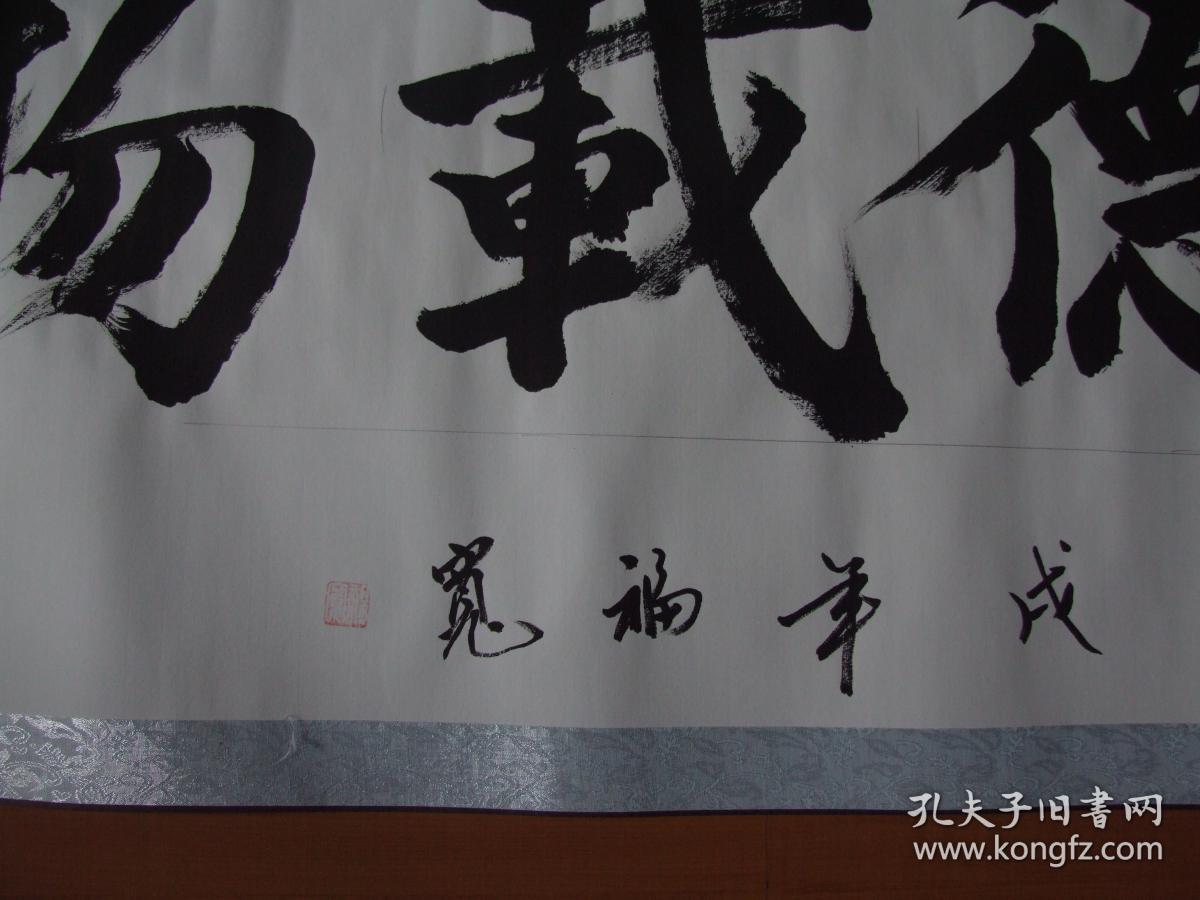 德載物
戌年福寬
孔夫子旧書网
www.kongfz.com